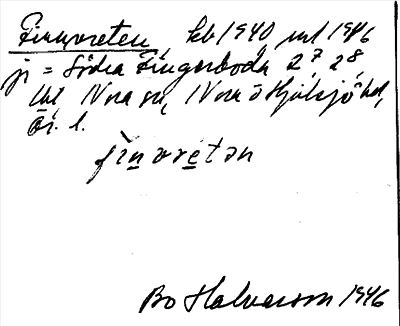 Finnvreten, kb 1940 uul 1946
ji = Södra Fingerboda 2⁷ 2⁸,
Nora sn, Nora o Hjulsjö hd,
Ör. l.
fìnvretən
Bo Halvarson 1946